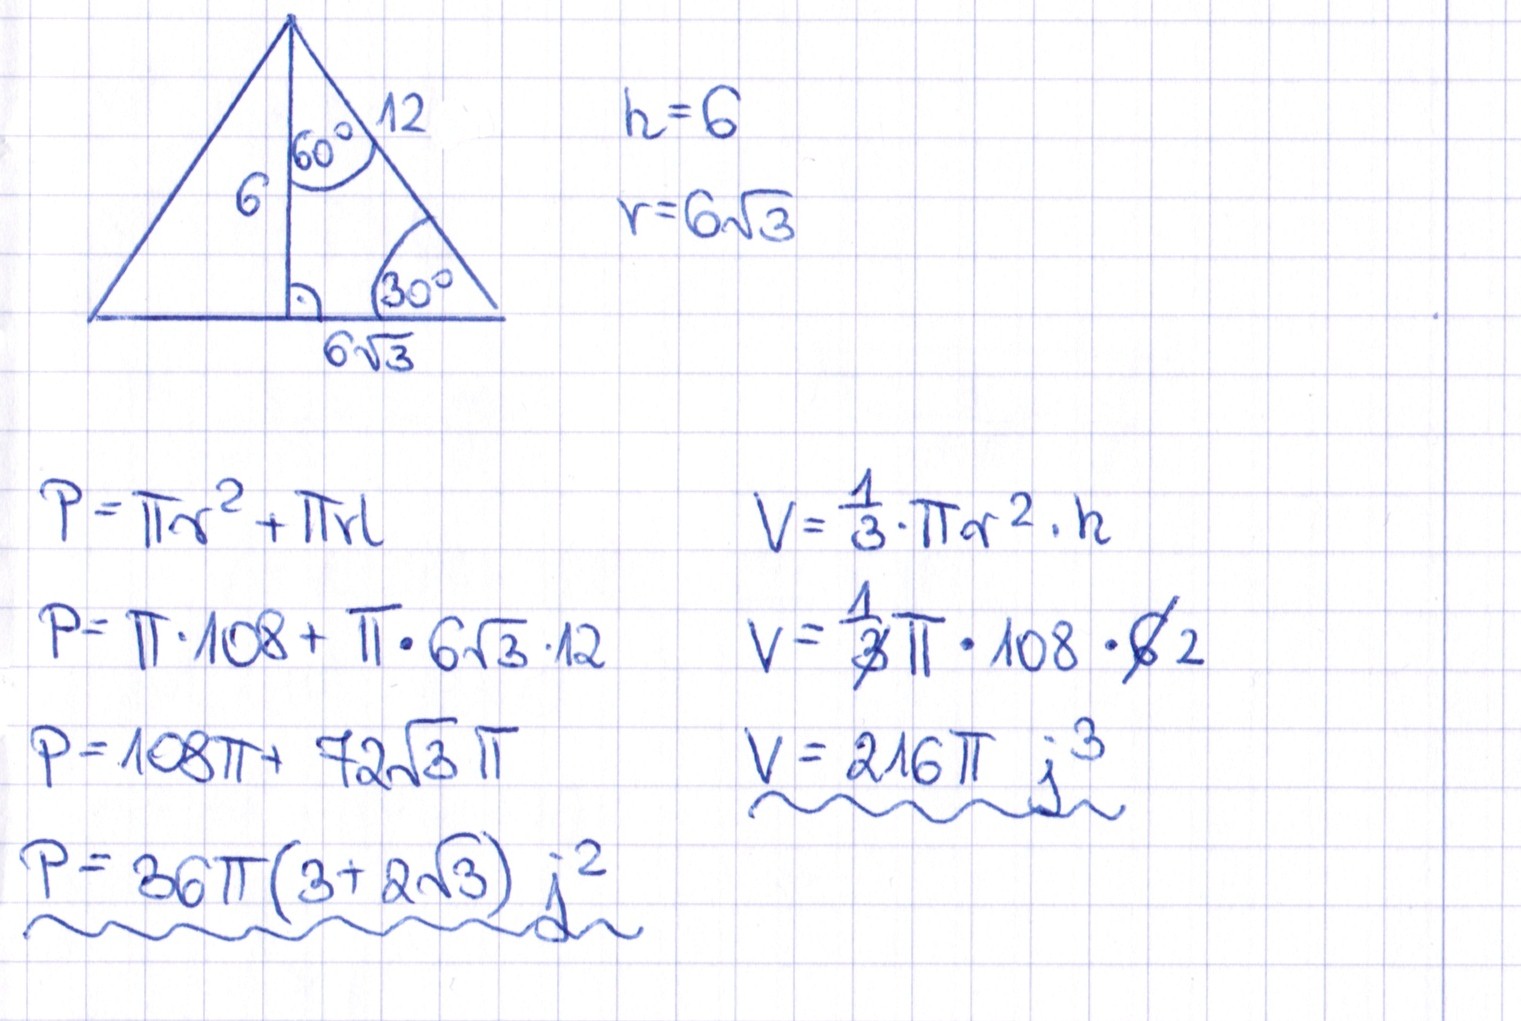 12
h=6
60°
6
r=6√3
30°
6√3
P=πr²+πrl
P=π·108+π·6√3·12
P=108π+72√3π
P=36π(3+2√3) j²
V=1/3·πr²·h
V=1/3π·108·6 2
V=216π j³